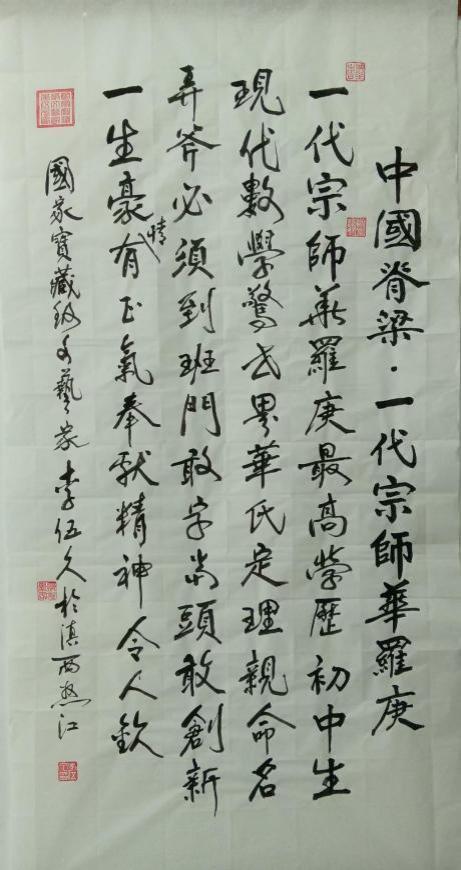 中國脊梁·一代宗師華羅庚
一代宗師華羅庚最高学歷初中生
現代數學驚世界華氏定理親命名
弄斧必須到班門敢字当頭敢創新
一生豪情有正氣奉献精神令人欽
國家寶藏级文藝家李伍久於滇西怒江